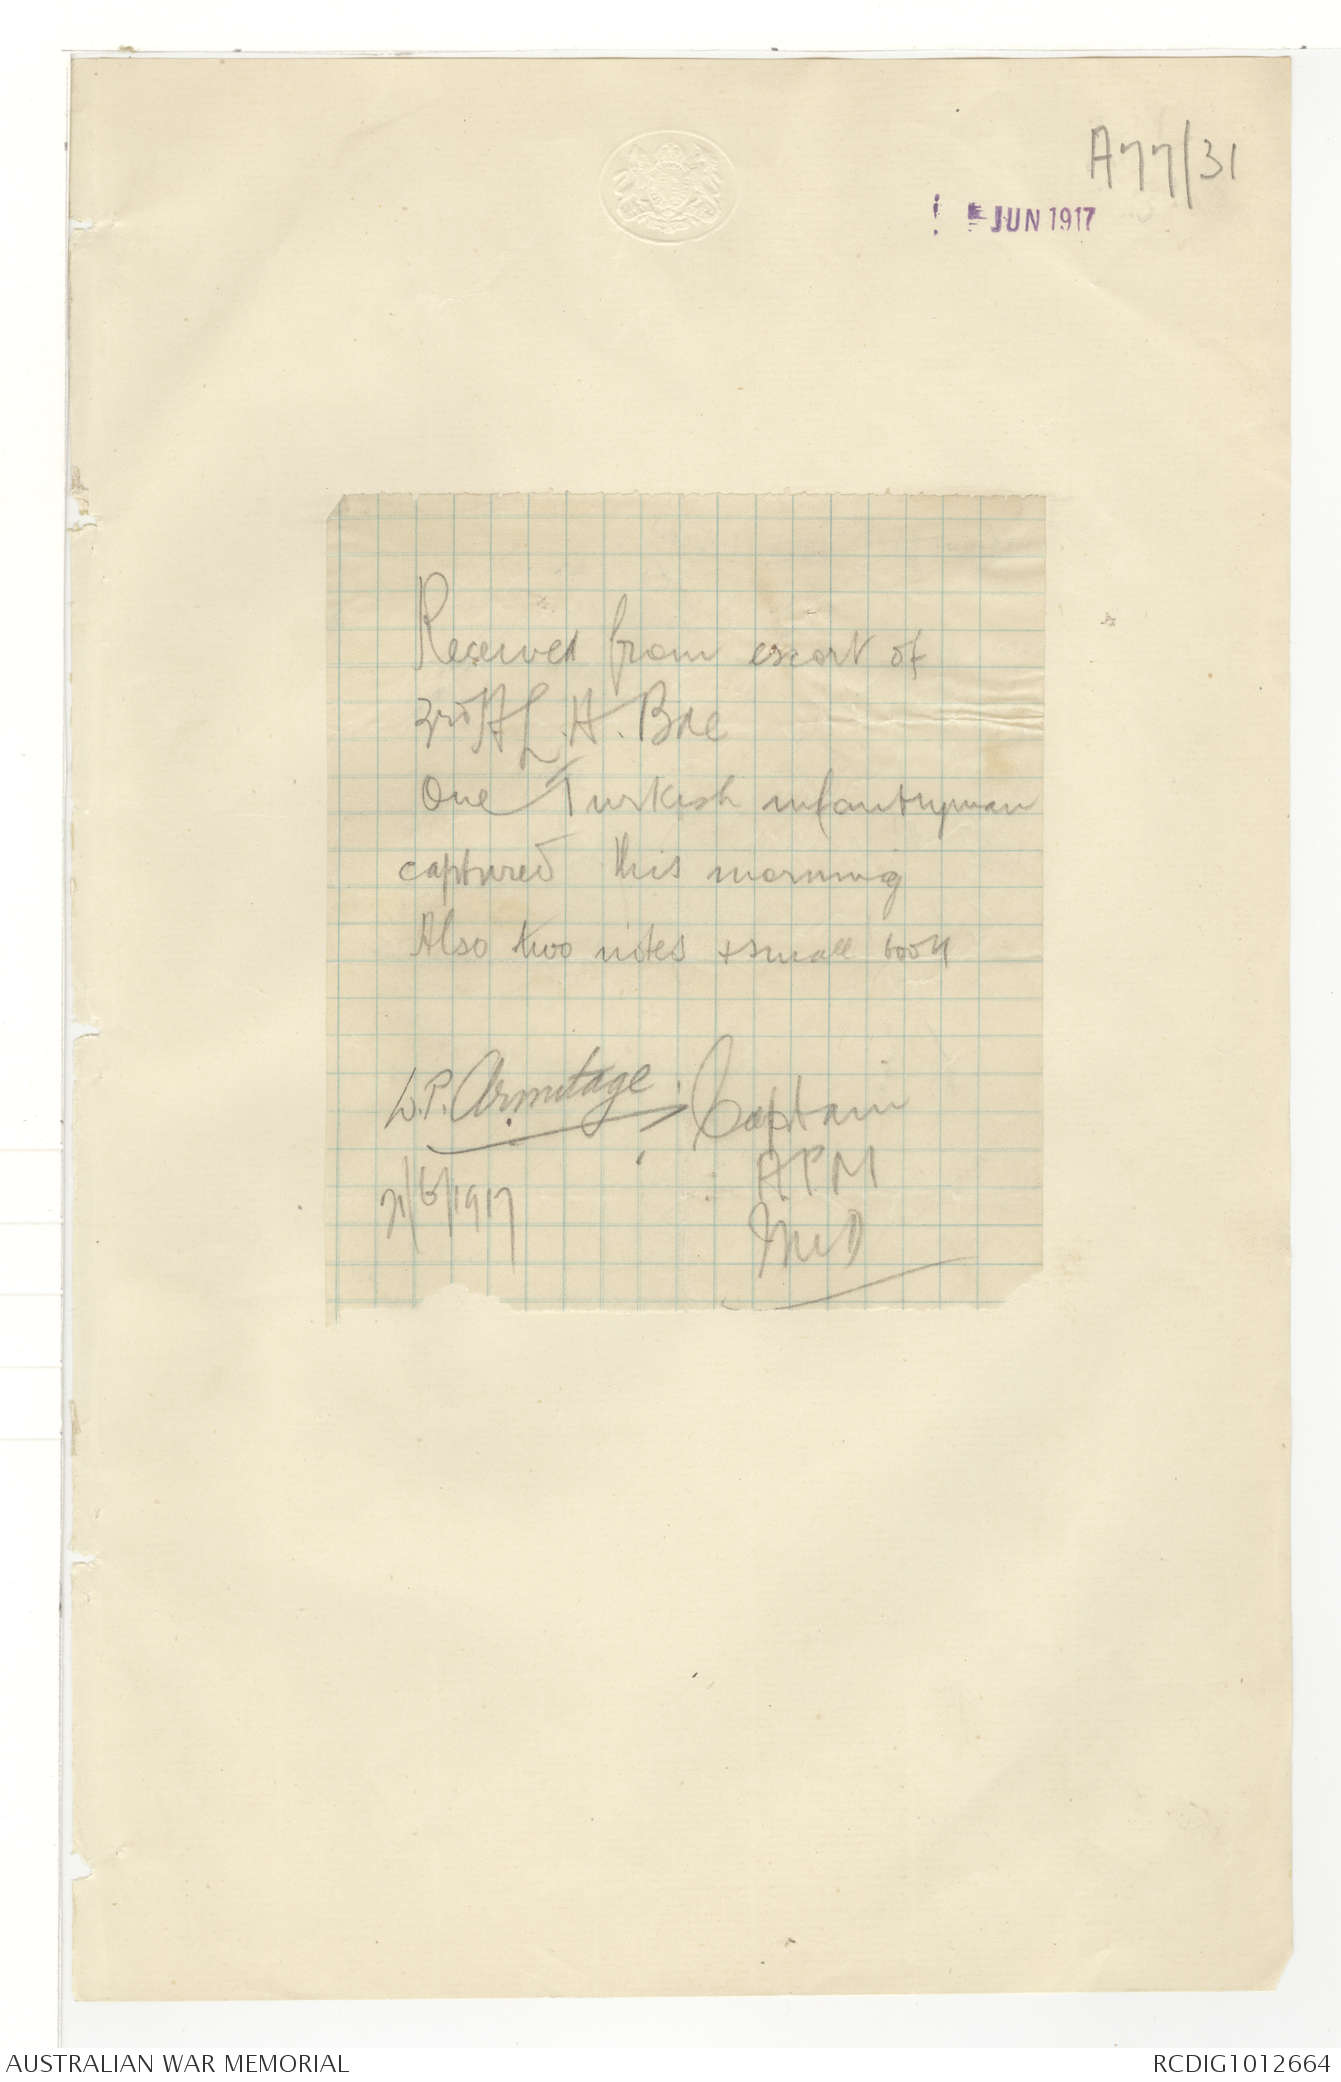 A77/31
JUN 1917
Received from escort of
3rd A L.H. Bde
One Turkish infantryman
captured this morning
Also two notes + small book
Armitage Captain
A.P.M
/6/1917
AUSTRALIAN WAR MEMORIAL
RCDIG1012664